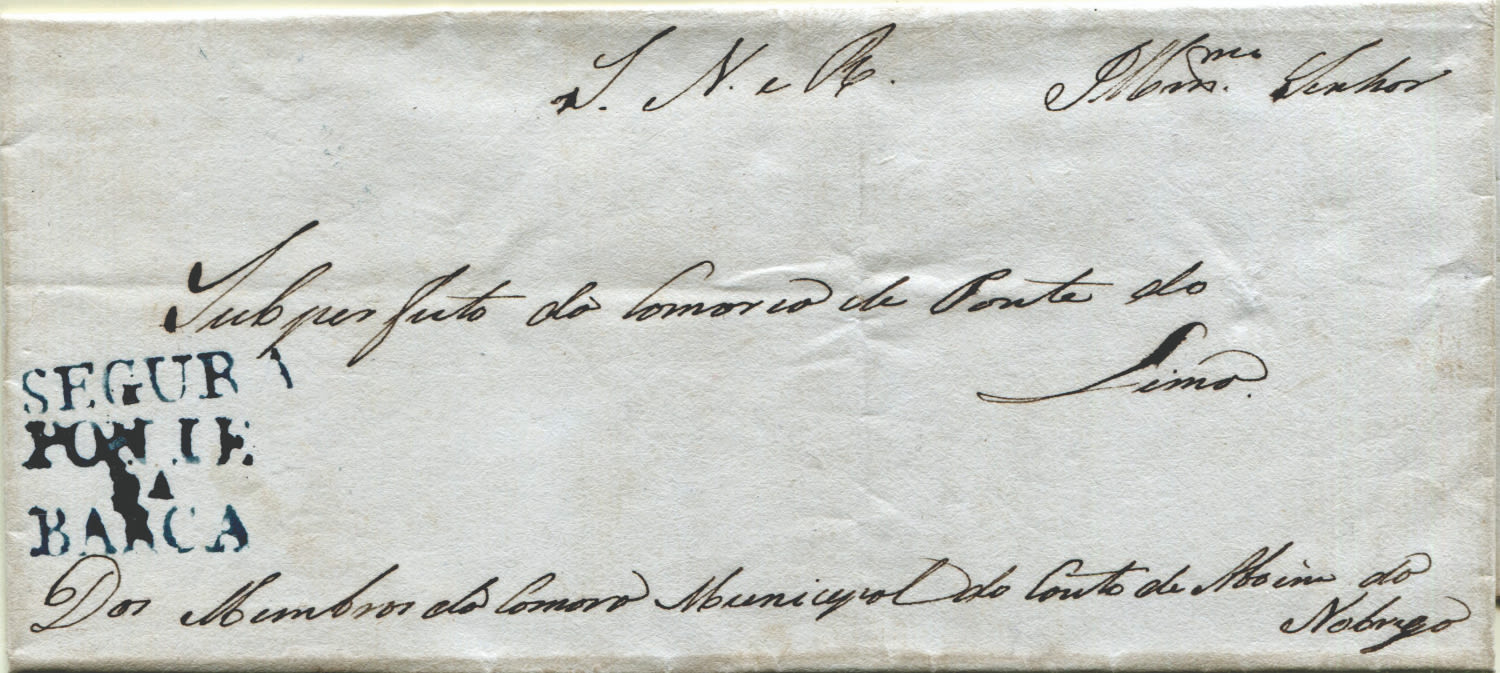 S. N. e R. Illmo. Senhor
Subperfeito da Comarca de Ponte do
Lima.
SEGURA
PONTE
DA
BARCA
Dos Membros da Camara Municipal do Couto de Aboim da
Nobrega